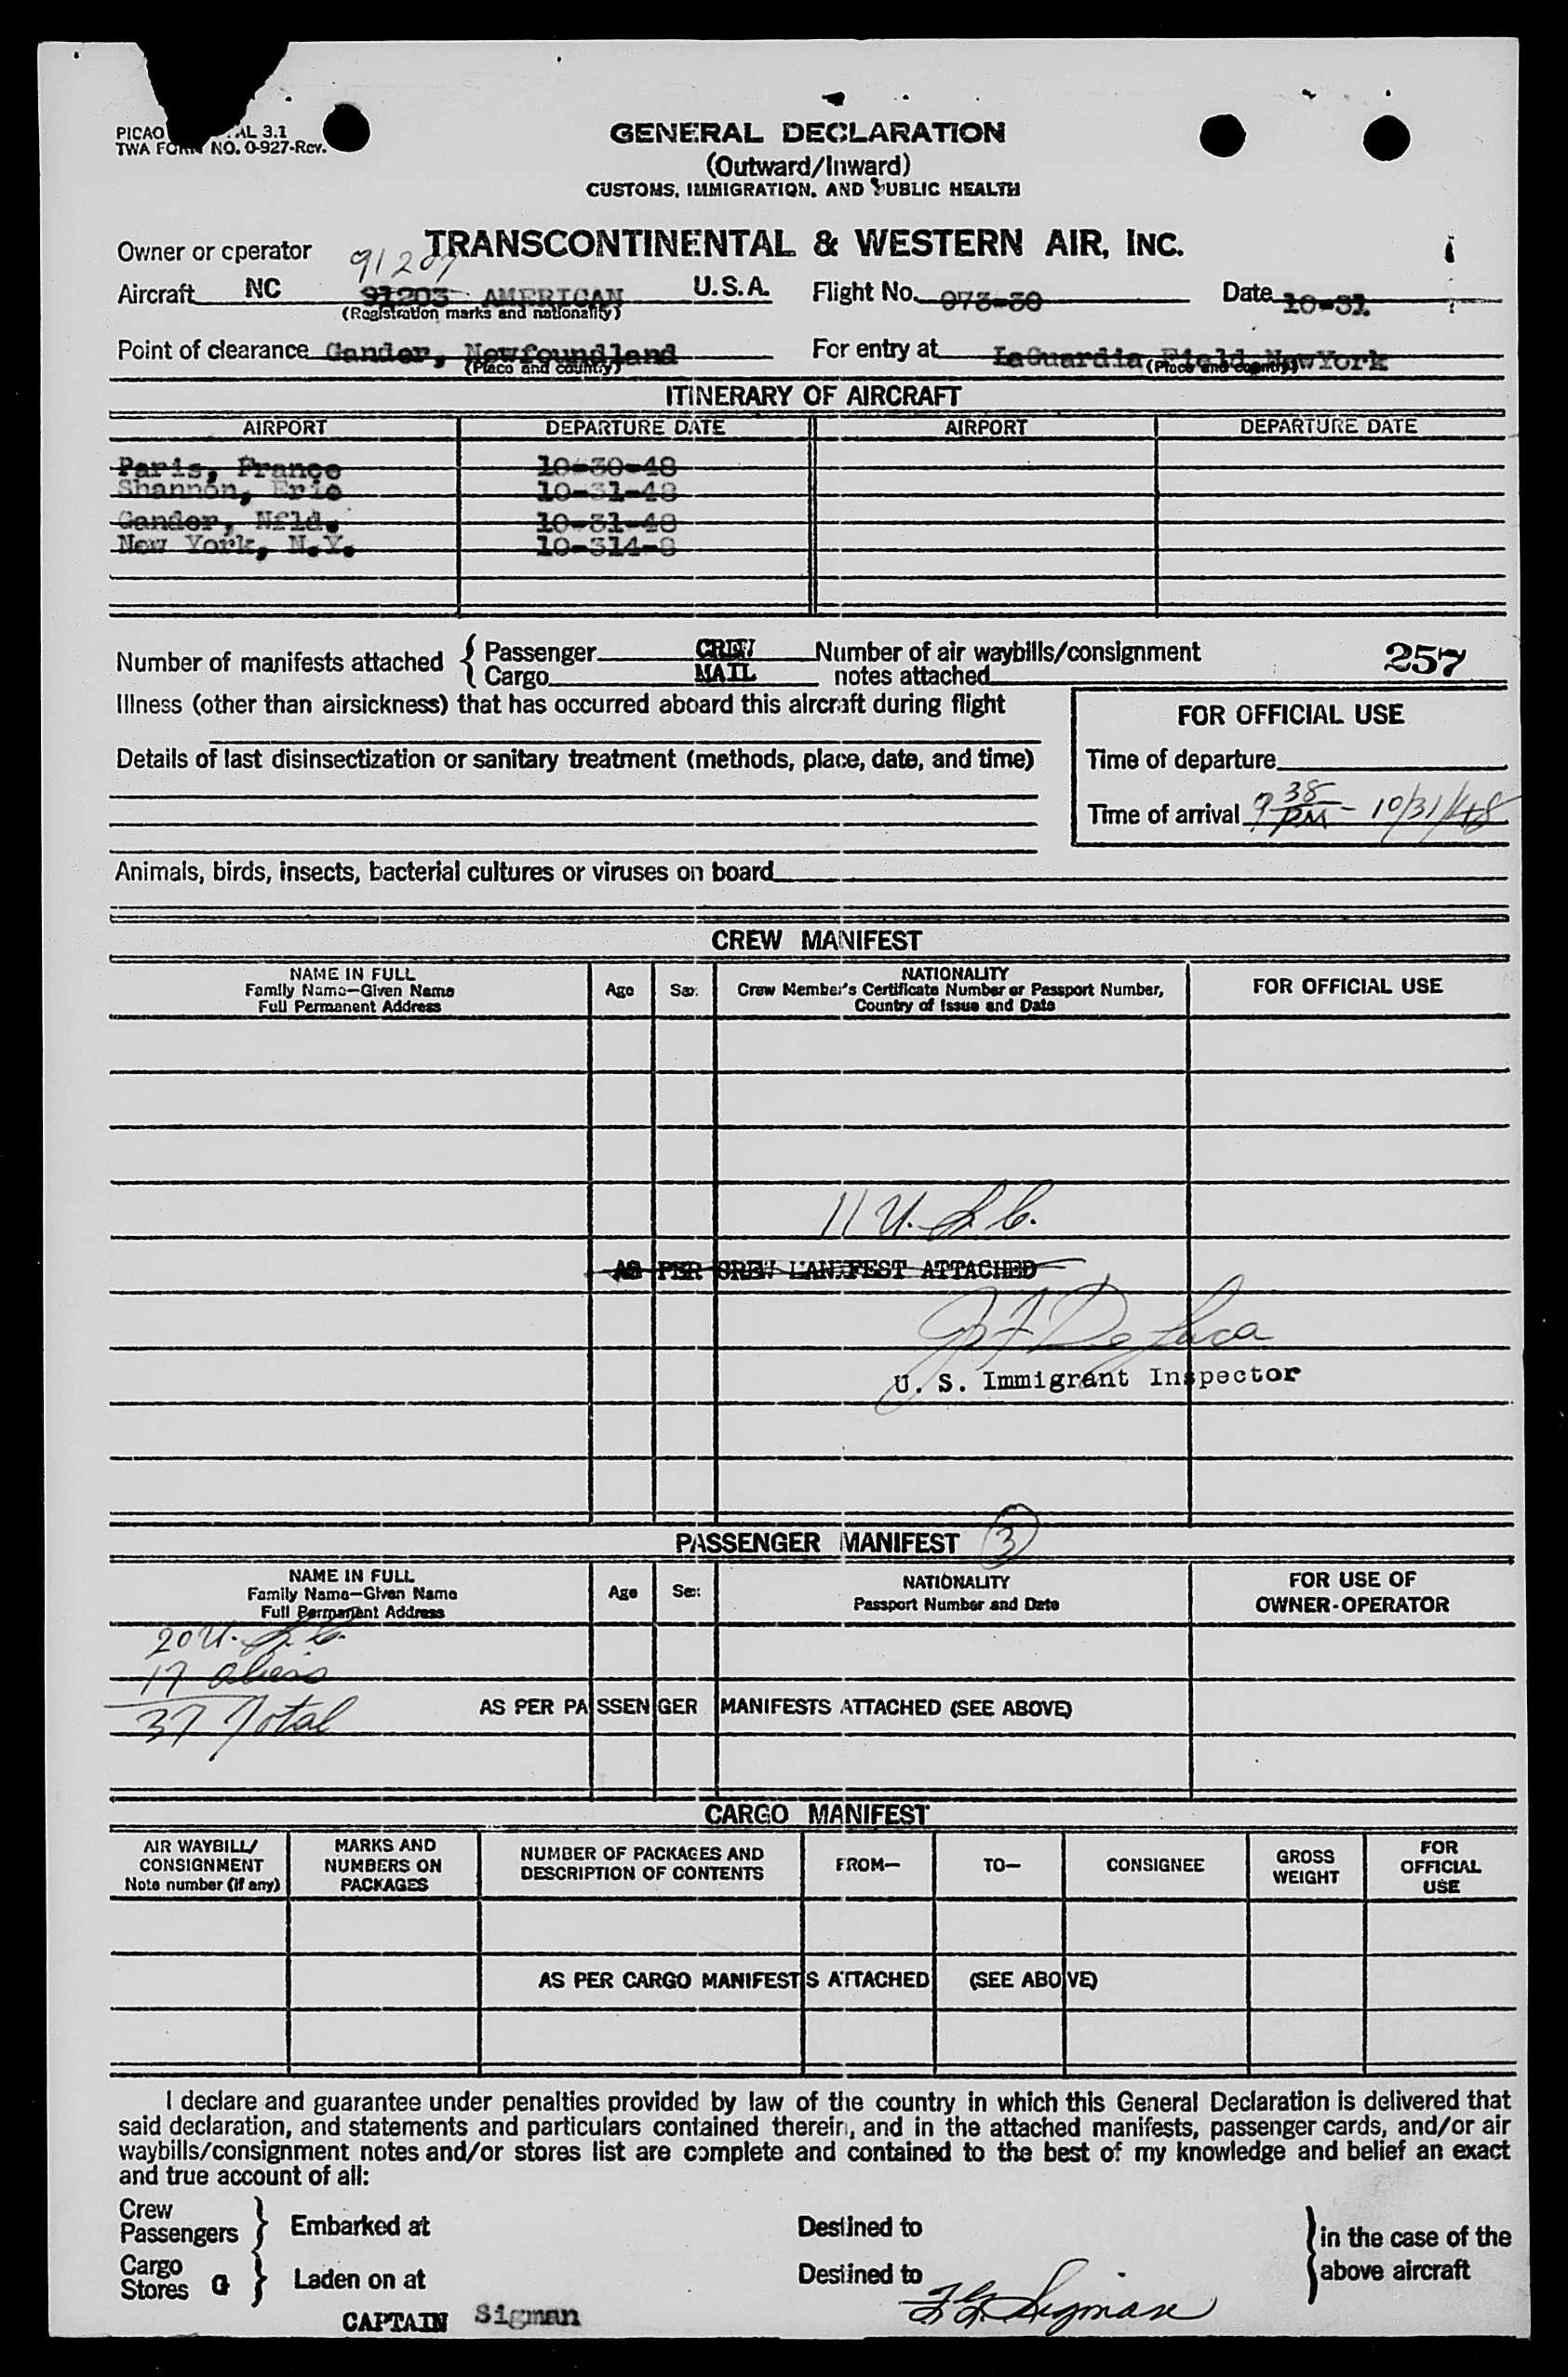 PICAO AL 3.1
TWA FORM NO. 0-927-Rev.
GENERAL DECLARATION
(Outward/Inward)
CUSTOMS, IMMIGRATION, AND PUBLIC HEALTH
Owner or operator TRANSCONTINENTAL & WESTERN AIR, INC.
91207
Aircraft NC 91203 AMERICAN U.S.A. Flight No. 073-30 Date 10-31
(Registration marks and nationality)
Point of clearance Gander, Newfoundland For entry at LaGuardia Field, NewYork
(Place and country) (Place and country)
ITINERARY OF AIRCRAFT
AIRPORT DEPARTURE DATE AIRPORT DEPARTURE DATE
Paris, France 10-30-48
Shannon, Erie 10-31-48
Gander, Nfld. 10-31-48
New York, N.Y. 10-314-8
Number of manifests attached { Passenger CREW Number of air waybills/consignment
Cargo MAIL notes attached 257
Illness (other than airsickness) that has occurred aboard this aircraft during flight
FOR OFFICIAL USE
Details of last disinsectization or sanitary treatment (methods, place, date, and time)
Time of departure
Time of arrival 9 38 PM - 10/31/48
Animals, birds, insects, bacterial cultures or viruses on board
CREW MANIFEST
NAME IN FULL
Family Name—Given Name
Full Permanent Address
Age Sex
NATIONALITY
Crew Member's Certificate Number or Passport Number,
Country of Issue and Date
FOR OFFICIAL USE
11 U.S.C.
AS PER CREW MANIFEST ATTACHED
De Luca
U. S. Immigrant Inspector
PASSENGER MANIFEST 3
NAME IN FULL
Family Name—Given Name
Full Permanent Address
Age Sex
NATIONALITY
Passport Number and Date
FOR USE OF
OWNER-OPERATOR
20 U.S.C.
17 aliens
37 Total
AS PER PASSENGER MANIFESTS ATTACHED (SEE ABOVE)
CARGO MANIFEST
AIR WAYBILL/
CONSIGNMENT
Note number (if any)
MARKS AND
NUMBERS ON
PACKAGES
NUMBER OF PACKAGES AND
DESCRIPTION OF CONTENTS
FROM—
TO—
CONSIGNEE
GROSS
WEIGHT
FOR
OFFICIAL
USE
AS PER CARGO MANIFESTS ATTACHED (SEE ABOVE)
I declare and guarantee under penalties provided by law of the country in which this General Declaration is delivered that
said declaration, and statements and particulars contained therein, and in the attached manifests, passenger cards, and/or air
waybills/consignment notes and/or stores list are complete and contained to the best of my knowledge and belief an exact
and true account of all:
Crew
Passengers } Embarked at Destined to } in the case of the
Cargo
Stores } Laden on at Destined to above aircraft
CAPTAIN Sigman
Sigman